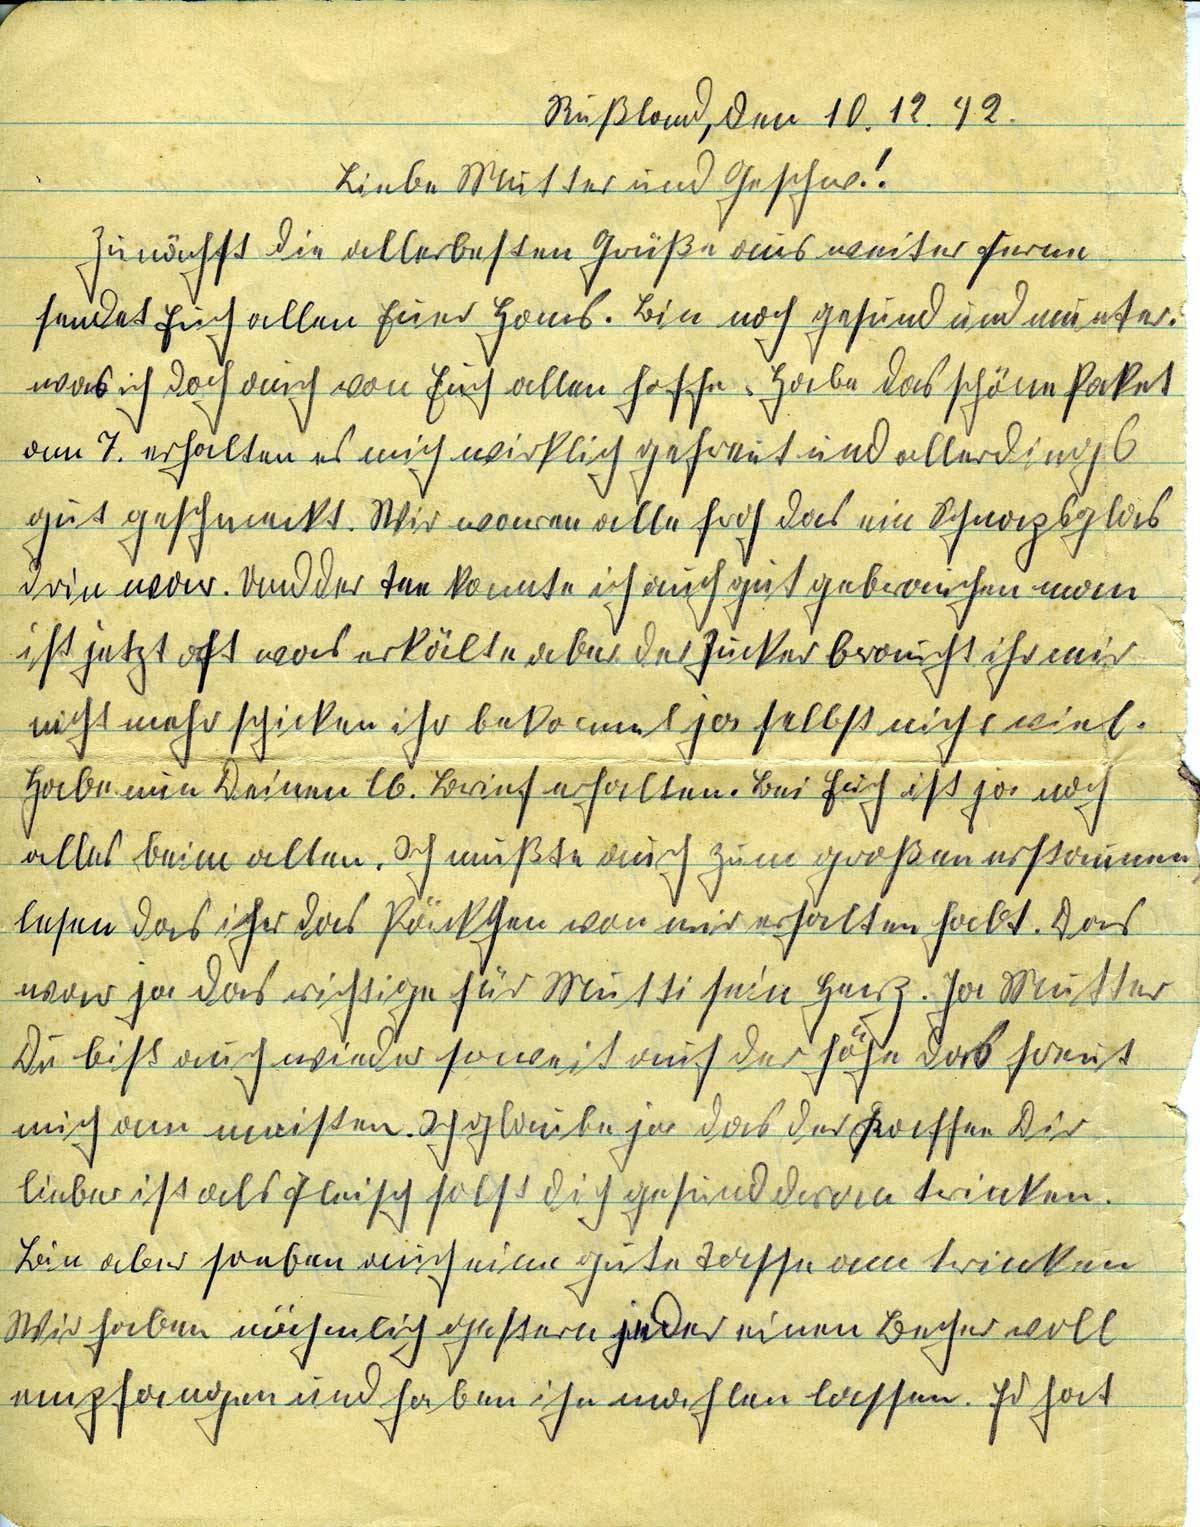 Rußland, den 10.12.42.
Liebe Mutter und Geschw.!
Zunächst die allerbesten Grüße aus weiter ferne
sendet Euch allen Euer Hans. Bin noch gesund und munter.
was ich doch auch von Euch allen hoffe. Habe das schöne Paket
am 7. erhalten es mich wirklich gefreut und allerdings
gut geschmeckt. Wir waren alle froh das ein Schnapsglas
drin war. Und der Tee konnte ich auch gut gebrauchen man
ist jetzt oft was erkälte aber der Zucker braucht ihr mir
nicht mehr schicken ihr bekommt ja selbst nicht viel.
Habe nun Deinen lb. Brief erhalten. Bei Euch ist ja noch
alles beim alten. Ich mußte auch zum großen erstaunen
lesen das ihr das Päckchen von mir erhalten habt. Das
war ja das richtige für Mutti sein Herz. Ja Mutter
Du bist auch wieder soweit auf der höhe das freut
mich am meisten. Ich glaube ja das der Kaffee Dir
lieber ist als Fleisch sollst dich gesund daran trinken.
Bin aber soeben auch eine gute Tasse am trinken
Wir haben nähmlich gestern jeder einen Becher voll
empfangen und haben ihn mahlen lassen. Er hat